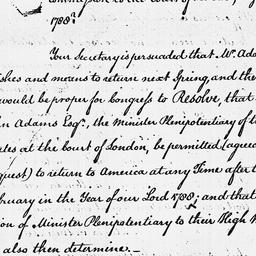 commission to the Court of
1788?
Your Secretary is persuaded that Mr. Ada
ishes and means to return next Spring, and the
would be proper for Congress to Resolve, that
hn Adams Esqr., the Minister Plenipotentiary of t
ates at the court of London, be permitted (agree
quest) to return to America at any Time after t
bruary in the Year of our Lord 1788; and that
ion of Minister Plenipotentiary to their High M
also then determine. —